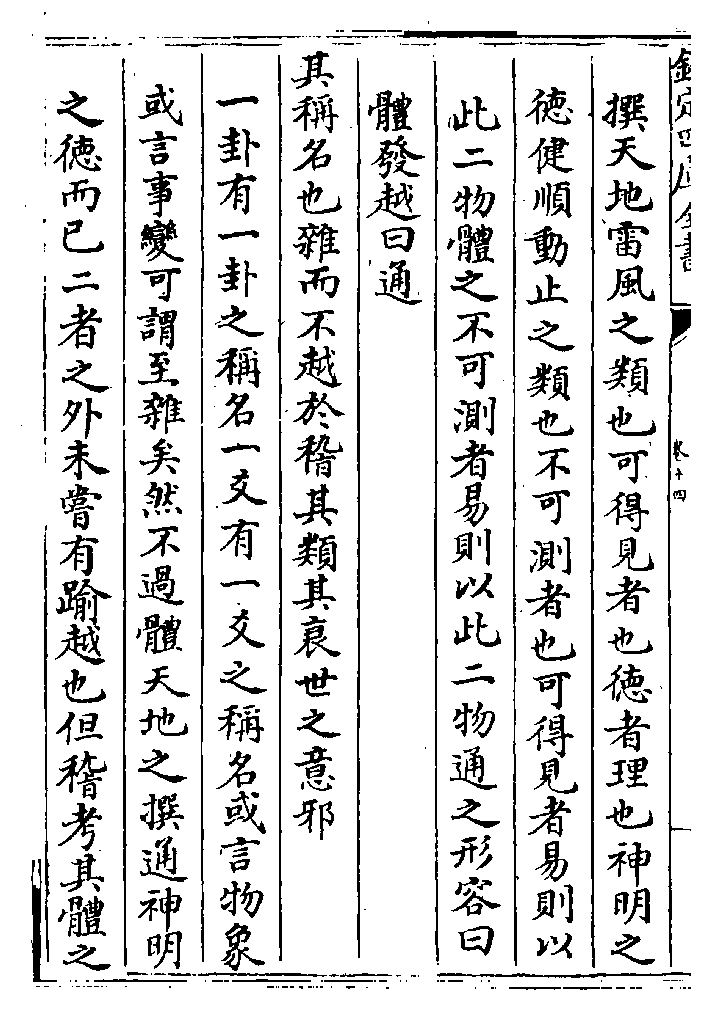 欽定四庫全書
卷十四
撰天地雷風之類也可得見者也徳者理也神明之
徳健順動止之類也不可測者也可得見者易則以
此二物體之不可測者易則以此二物通之形容曰
體發越曰通
其稱名也雜而不越於稽其類其衰世之意邪
一卦有一卦之稱名一爻有一爻之稱名或言物象
或言事變可謂至雜矣然不過體天地之撰通神明
之徳而已二者之外未嘗有踰越也但稽考其體之